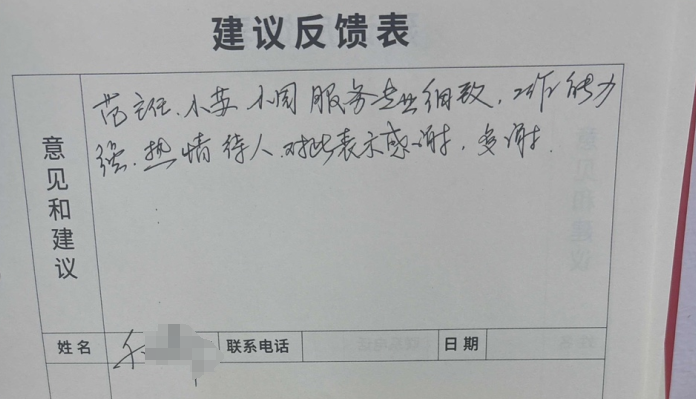 建议反馈表
意见和建议
范主任、小英、小周服务专业细致，工作能力
强，热情待人，对此表示感谢，多谢.
姓名 联系电话 日期